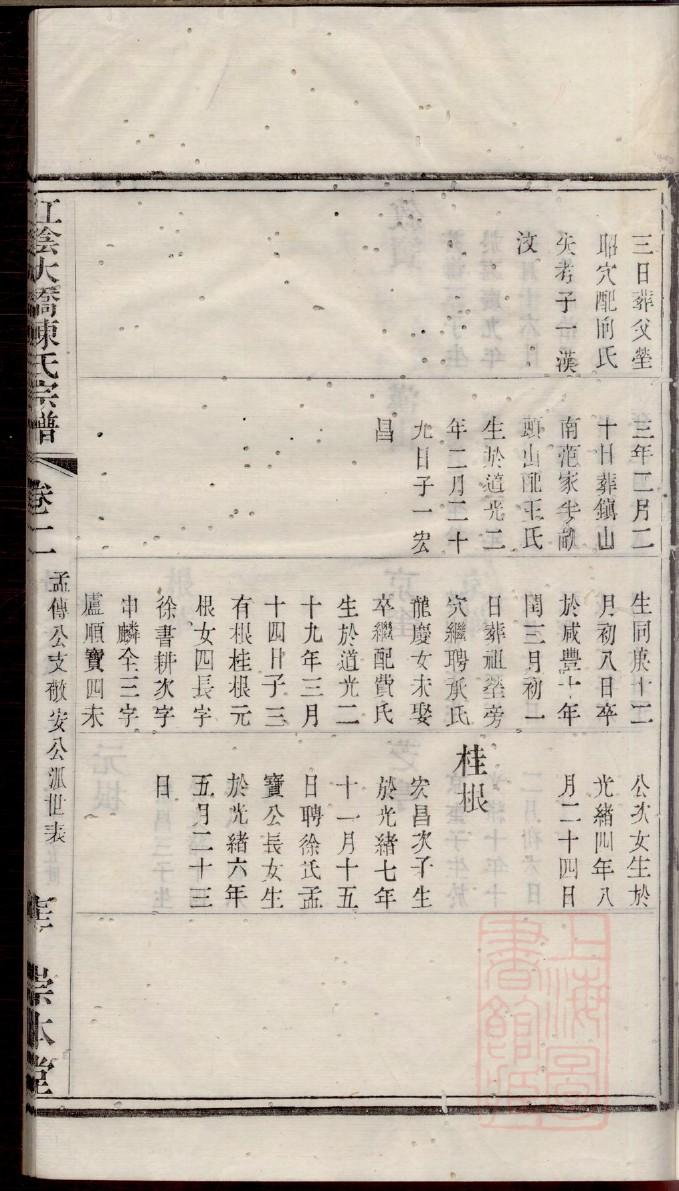 三日葬父塋
昭穴配俞氏
失考子一漢
汶
三年二月二
十日葬鎮山
南范家步敵
頭山配王氏
生於道光二
年二月二十
九日子一宏
昌
生同庚十二
月初八日卒
於咸豐十年
閏三月初一
日葬祖塋旁
穴繼聘承氏
龍慶女未娶
卒繼配費氏
生於道光二
十九年三月
十四日子三
有根桂根元
根女四長字
徐書耕次字
申麟全三字
盧順寶四未
公次女生於
光緒四年八
月二十四日
桂根
宏昌次子生
於光緒七年
十一月十五
日聘徐氏孟
寶公長女生
於光緒六年
五月二十三
日
江陰大橋陳氏宗譜
卷二
孟傳公支徽安公派世表
崇本堂
上海圖
書館藏